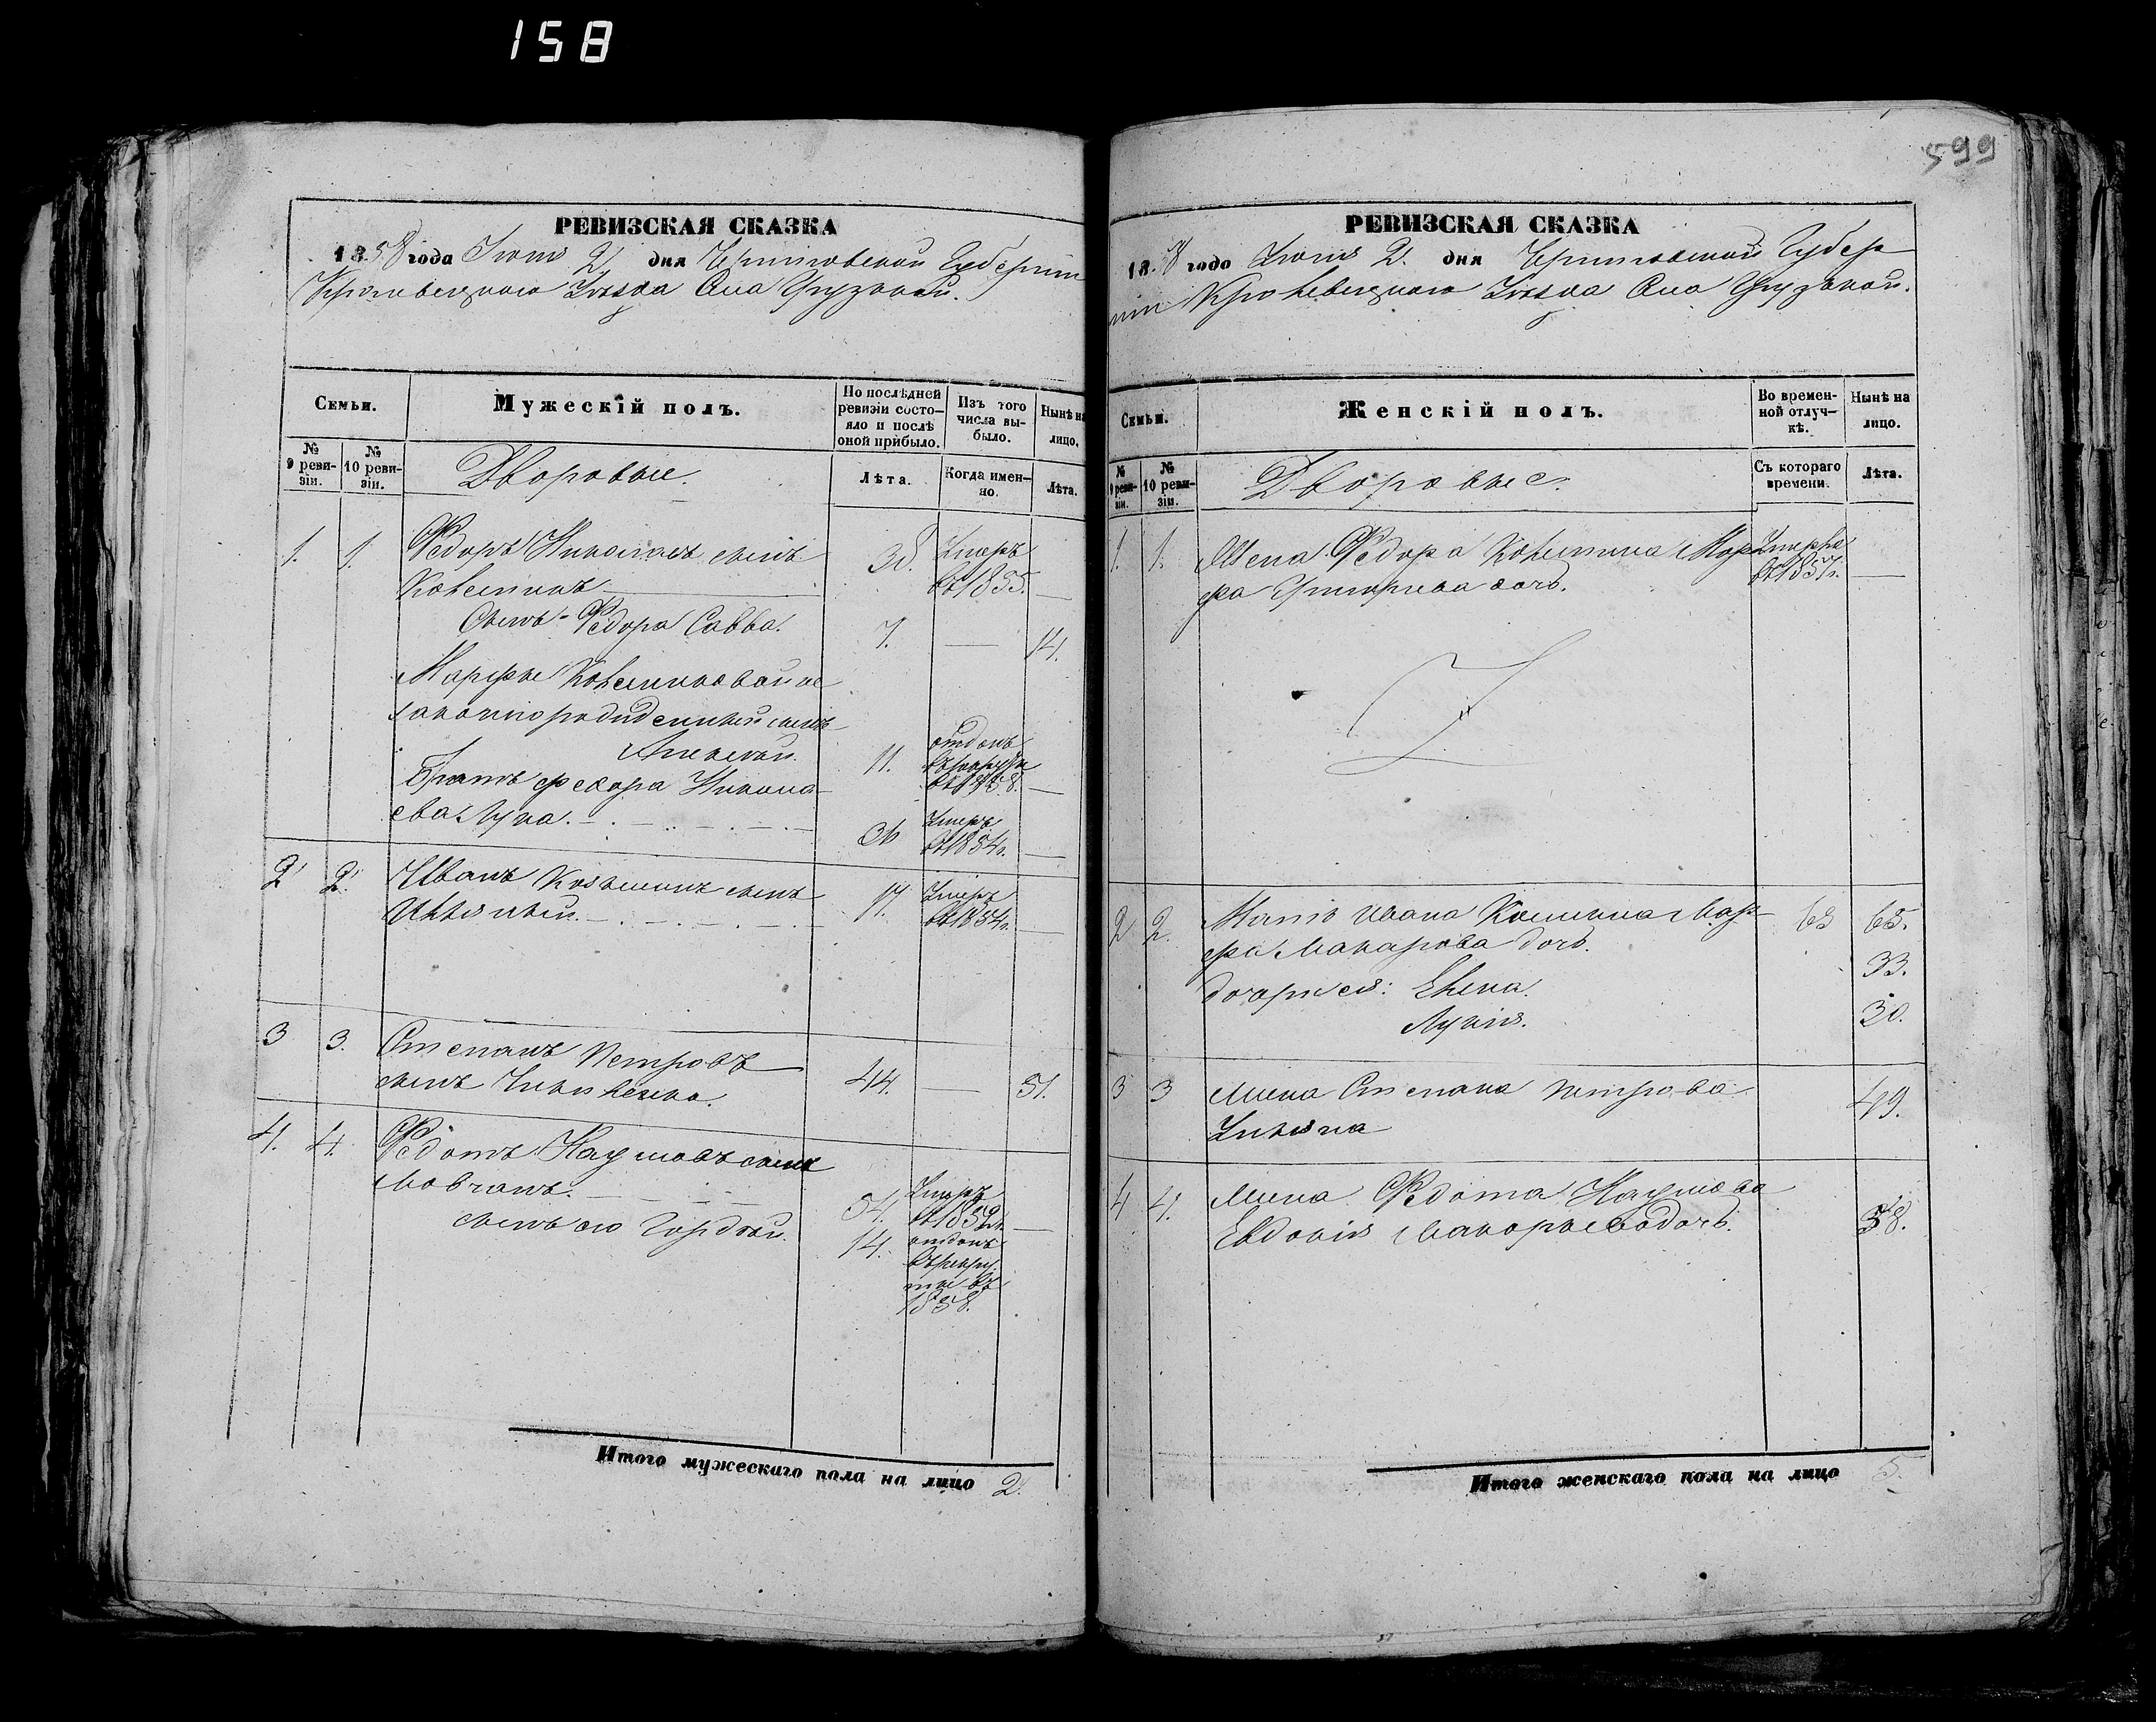 158
599
РЕВИЗСКАЯ СКАЗКА
1858 года Іюня 2 дня Черниговской Губерніи
Кролевецкаго Уѣзда Села Грузской.
Семьи.
Мужескій полъ.
По послѣдней ревизіи состояло и послѣ оной прибыло.
Изъ того числа выбыло.
Нынѣ на лицо.
№ 9 ревизіи.
№ 10 ревизіи.
Дворовые.
Лѣта.
Когда именно.
Лѣта.
1. 1. Федоръ Николаевъ сынъ 38. Умеръ
въ 1855. —
Сынъ Федора Савва. 7. — 14.
Марфы
сынъ
Алексей. 11. отданъ
въ рекруты
въ 1858. —
Братъ Федора Никола-
ева Лука. Умеръ
въ 1854г. —
2 2. Иванъ сынъ 17. Умеръ
въ 1854г. —
3 3. Степанъ Петровъ
сынъ 44. — 51.
4. 4. Федотъ Наумовъ сынъ
Мовчанъ. 54. Умеръ
въ 1852г. —
сынъ его Гордѣй. 14. отданъ
въ рекру-
ты въ
1858.
Итого мужескаго пола на лицо 2.
РЕВИЗСКАЯ СКАЗКА
1858 года Іюня 2. дня Черниговской Губер
ніи Кролевецкаго Уѣзда Села Грузской.
Семьи.
Женскій полъ.
Во временной отлучкѣ.
Нынѣ на лицо.
№ 9 ревизіи.
№ 10 ревизіи.
Дворовые.
Съ котораго времени.
Лѣта.
1. 1. Жена Федора Мар- Умерла
фа Григорьева дочь. въ 1857г. —
2 2. Мать Ивана Мар- 65 65.
фа Макарова дочь.
дочери ея: Елена. 33.
Лукія. 30.
3 3 Жена Степана Петрова 49.
Ульяна
4 4. Жена Федота Наумова
Евдокія Макарьева дочь. 58.
Итого женскаго пола на лицо 5.